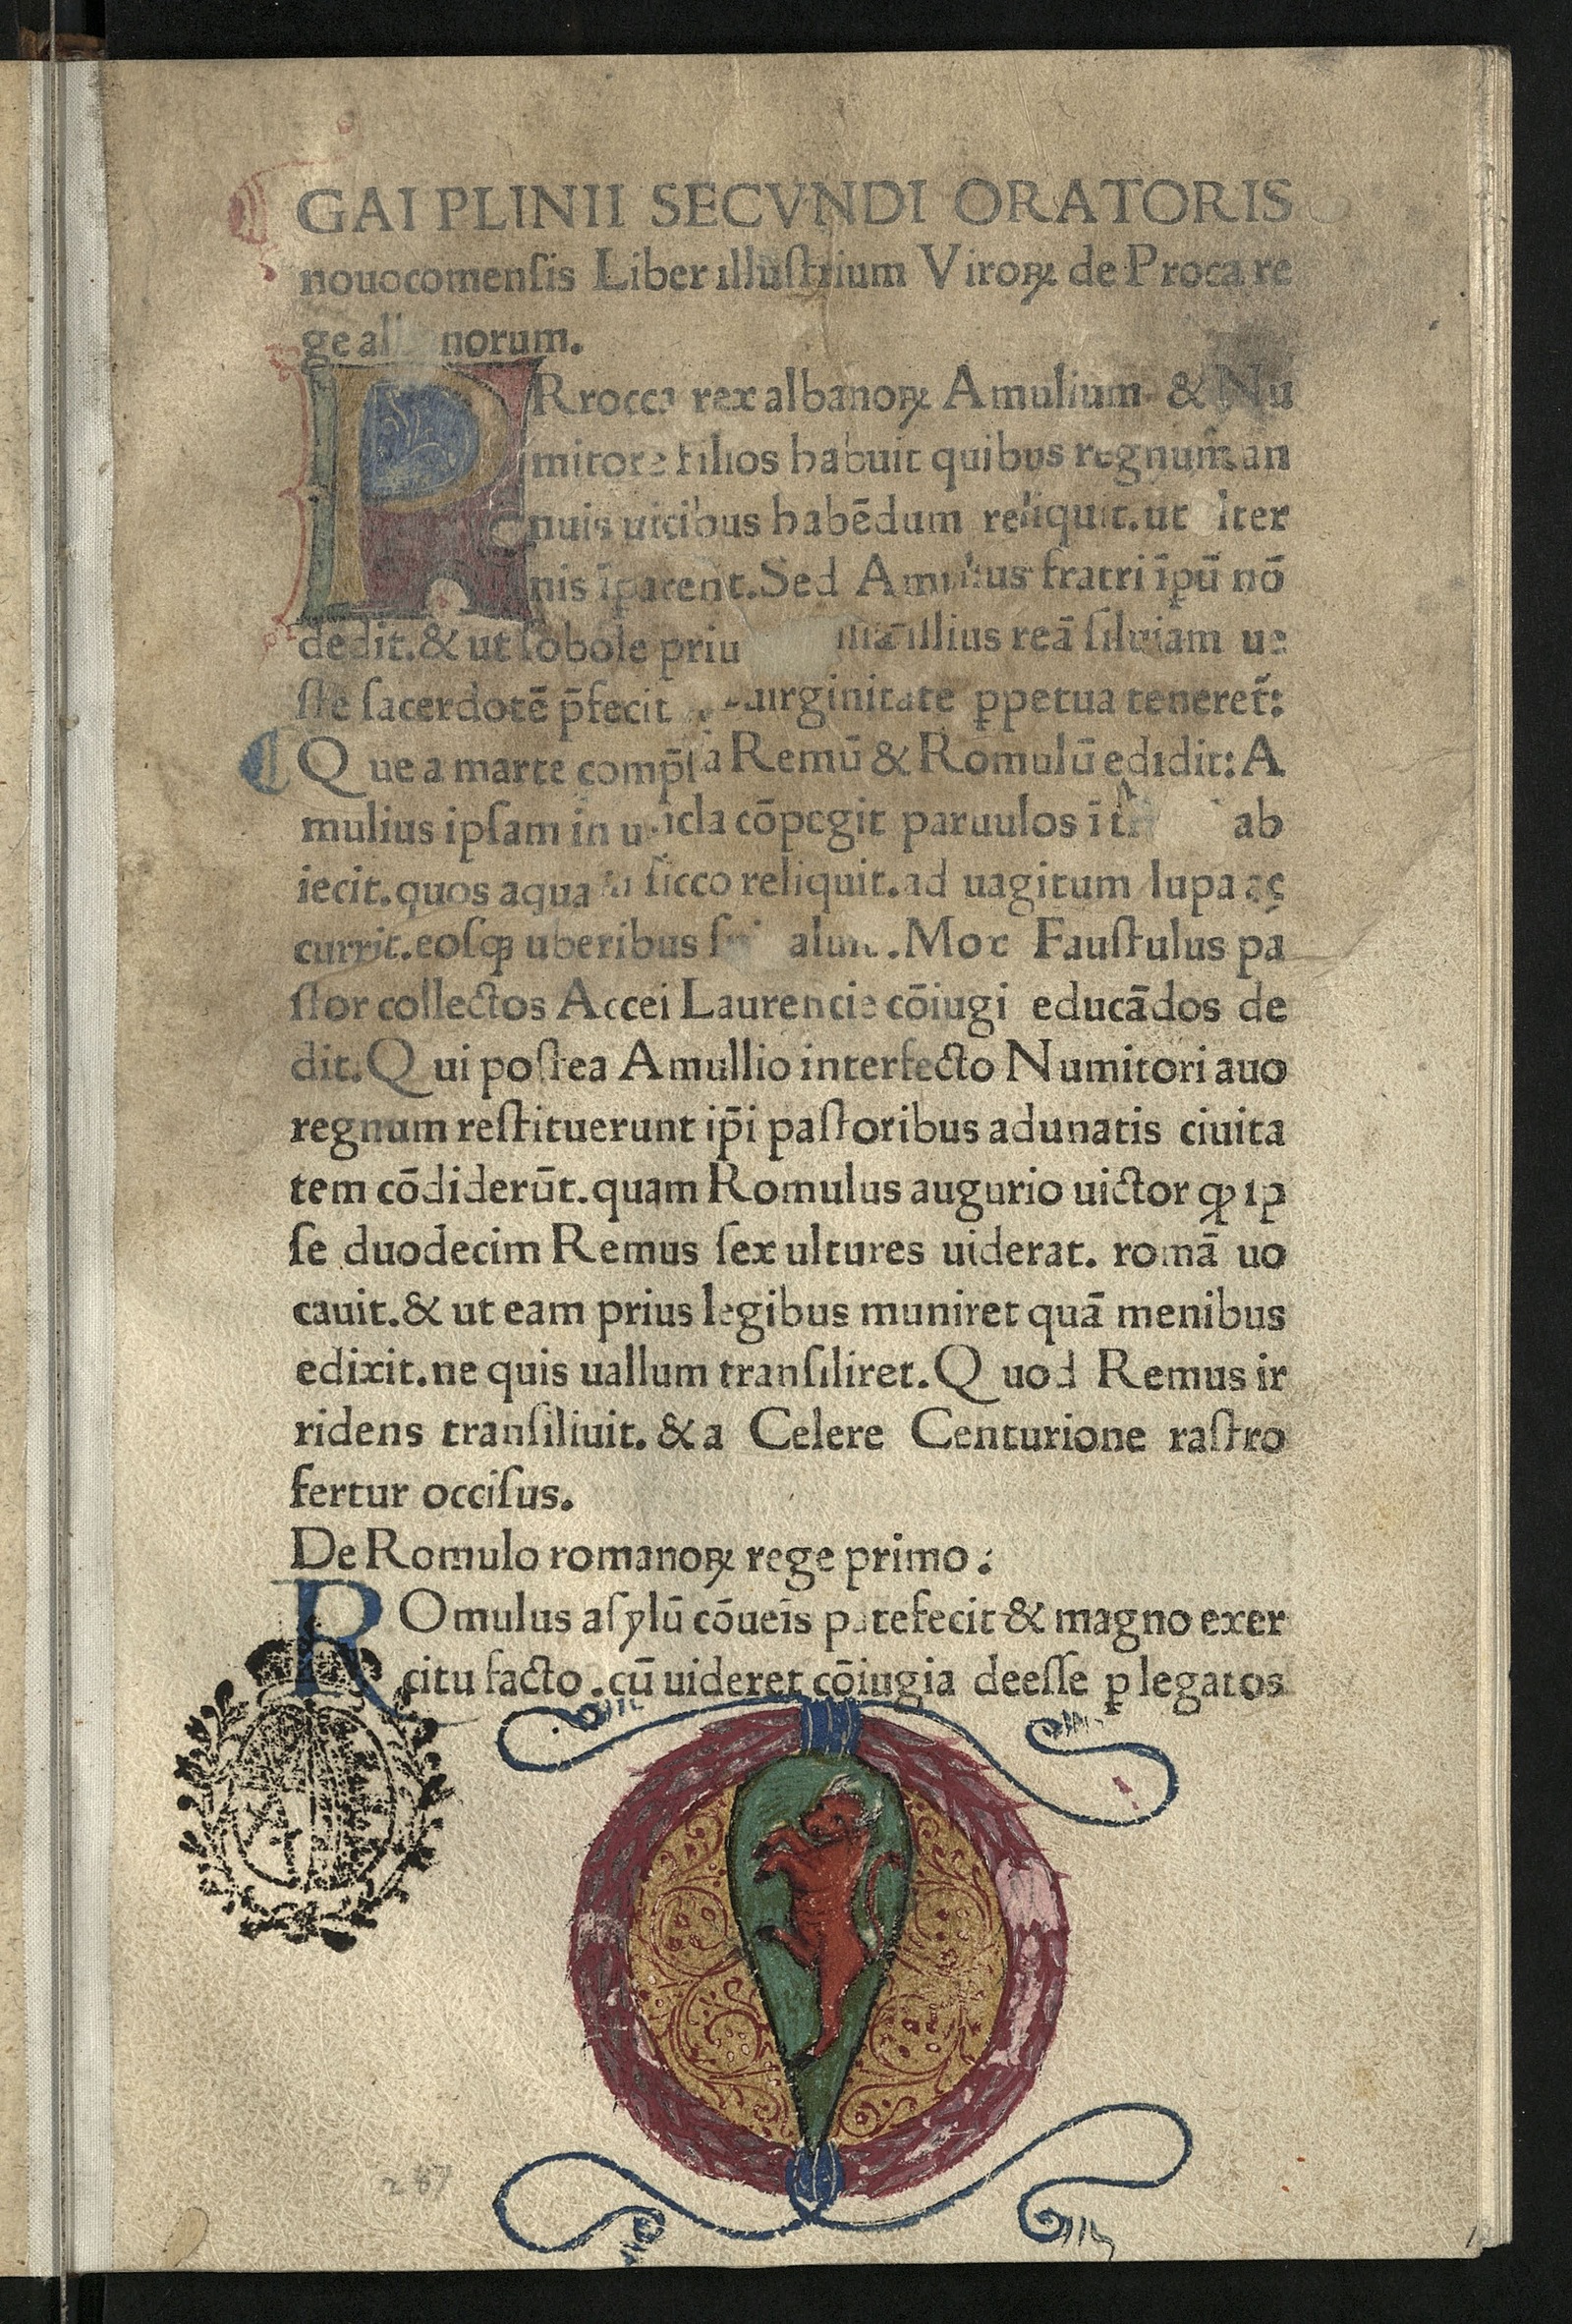 GAI PLINII SECVNDI ORATORIS
nouocomenſis Liber illuſtrium Viroꝝ de Proca re
ge norum.
PRrocca rex albanoꝝ Amulium & Nu
mitore filios habuit quibus regnum an
nuis uicibus habēdum reliquit. ut
nis īꝑarent. Sed Amulius fratri īꝑū nō
dedit. & ut ſobole illius reā ſiluiam ue
ſte ſacerdotē p̄fecit uirginitate ꝑpetua teneret̄:
Que a marte Remū & Romulū edidit: A
mulius ipſam in cōpegit paruulos ab
iecit. quos aqua ſicco reliquit. ad uagitum lupa ac
currit. eoſqꝫ uberibus Mox Fauſtulus pa
ſtor collectos Accei Laurencie cōiugi educādos de
dit. Qui poſtea Amullio interfecto Numitori auo
regnum reſtituerunt ip̄i paſtoribus adunatis ciuita
tem cōdiderūt. quam Romulus augurio uictor ꝙ ip
ſe duodecim Remus ſex ultures uiderat. romā uo
cauit. & ut eam prius legibus muniret quā menibus
edixit. ne quis uallum tranſiliret. Quod Remus ir
ridens tranſiliuit. & a Celere Centurione raſtro
fertur occiſus.
De Romulo romanoꝝ rege primo:
ROmulus aſylū cōueīs patefecit & magno exer
citu facto. cū uideret cōiugia deeſſe ꝑ legatos
267